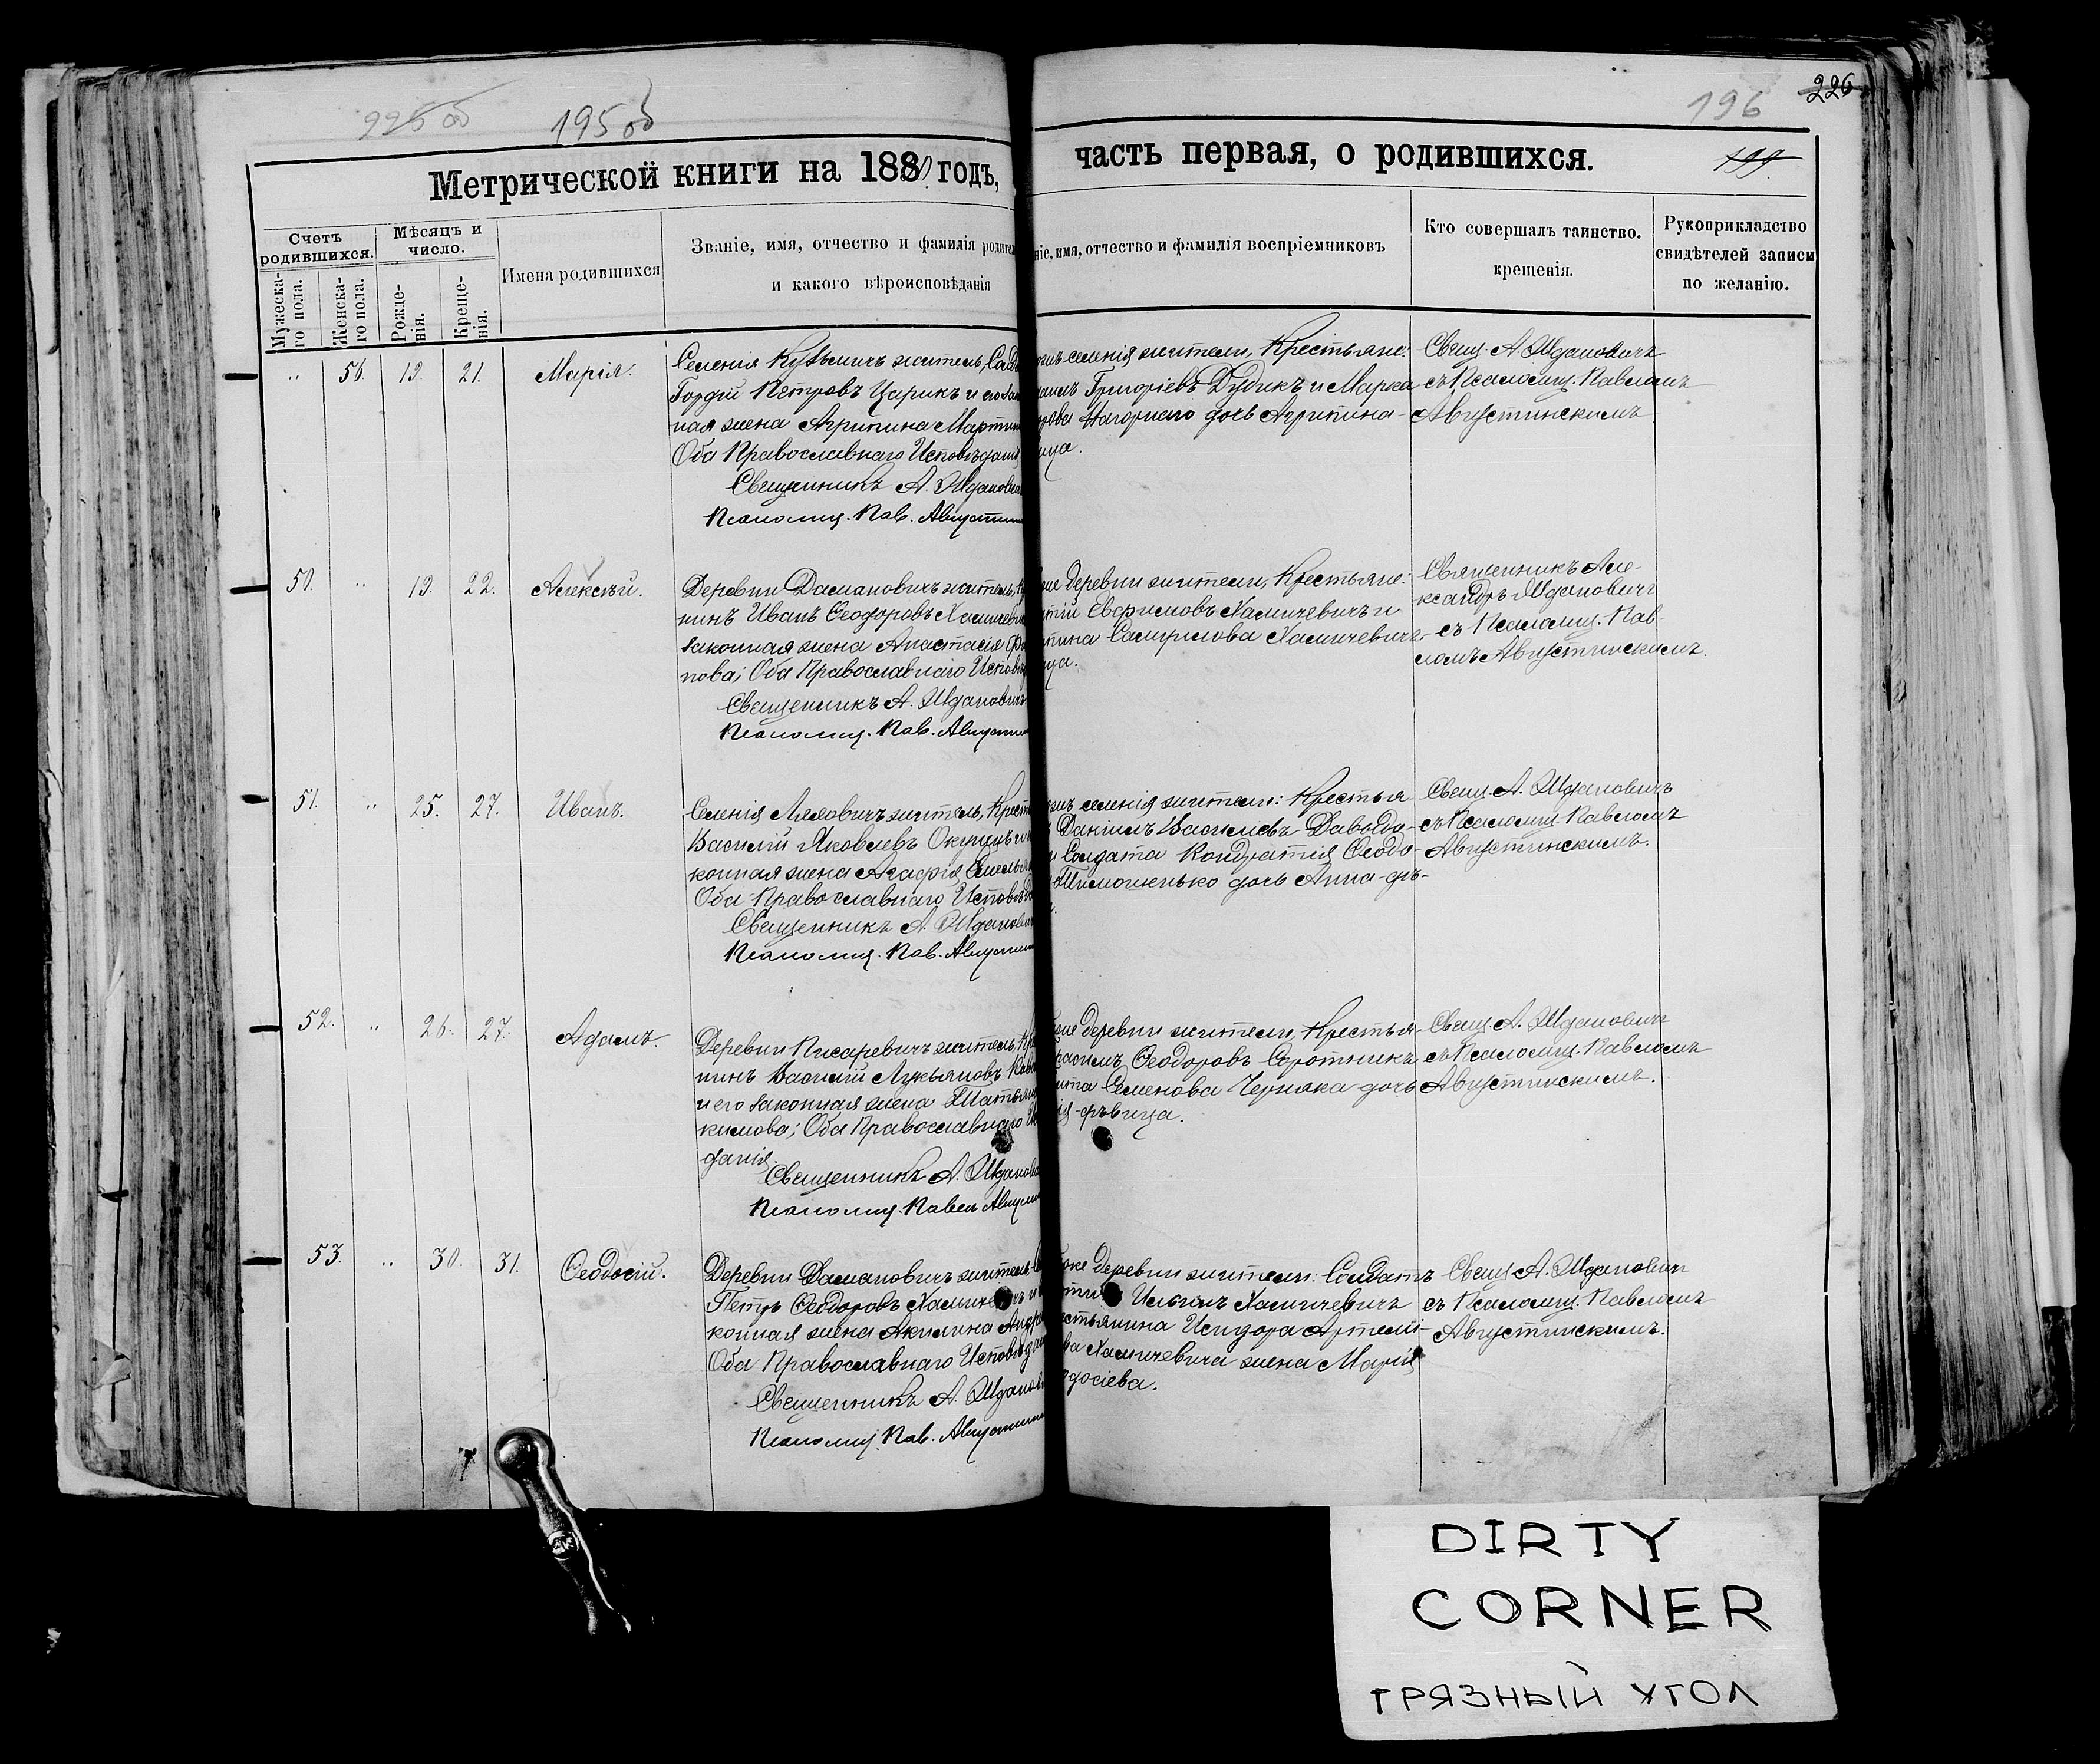 225 об
195 об
196
226
199.
Метрической книги на 1880 годъ, часть первая, о родившихся.
Счетъ родившихся.
Мужеска-
го пола.
Женска-
го пола.
Мѣсяцъ и
число.
Рожде-
нія.
Креще-
нія.
Имена родившихся
Званіе, имя, отчество и фамилія родител
и какого вѣроисповѣданія
ніе, имя, отчество и фамилія воспріемниковъ
Кто совершалъ таинство.
крещенія.
Рукоприкладство
свидѣтелей записи
по желанію.
" 56. 19. 21. Марія.
Селенія Кузьмичъ житель, Солд
Гордій Петровъ Царикъ и его зак
ная жена Агрипина Мартин
Оба Православнаго Исповѣдані
Священникъ А. Ждановичъ
Псаломщ. Пав. Августин
селенія жители, Крестьяне:
Григоріевъ Дудикъ и Марка
Нагорнаго дочь Агрипина-
ица.
Свящ. А. Ждановичъ
съ Псаломщ. Павломъ
Августинскимъ
50. " 19. 22. Алексѣй.
Деревни Дамановичъ житель, Кр
нинъ Иванъ Ѳеодоровъ Хамичеви
законная жена Анастасія Фи
пова; Оба Православнаго Исповѣ
Священникъ А. Ждановичъ
Псаломщ. Пав. Августин
же деревни жители, Крестьяне:
Евфимовъ Хамичевичъ и
Самуилова Хамичевичъ-
ица.
Священникъ Але-
ксандръ Ждановичъ
съ Псаломщ. Пав-
ломъ Августинскимъ.
51. " 25. 27. Иванъ.
Селенія Ляховичъ житель, Крест
Василій Яковлевъ Окунь и
конная жена Агафія Емелья
Оба Православнаго Исповѣд
Священникъ А. Ждановичъ
Псаломщ. Пав. Августин
селенія жители: Крестья
Даніилъ Василіевъ Давыдо-
Солдата Кондратія Ѳеодо-
Тимошенько дочь Анна-дѣ-
Свящ. А. Ждановичъ
съ Псаломщ. Павломъ
Августинскимъ.
52. " 26. 27. Адамъ.
Деревни Писаревичъ житель, Кр
нинъ Василій Лукьяновъ Ков
и его законная жена Татьян
кимова; Оба Православнаго И
данія.
Священникъ А. Жданов
Псаломщ. Павелъ Август
же деревни жители, Крестья-
Ѳеодоровъ Сиротникъ
Семенова Черняка дочь
дѣвица.
Свящ. А. Ждановичъ
съ Псаломщ. Павломъ
Августинскимъ.
53. " 30. 31. Ѳеодосій.
Деревни Дамановичъ житель-С
Петръ Ѳеодоровъ Хамичевичъ и
конная жена Акилина Андр
Оба Православнаго Исповѣдан
Священникъ А. Жданов
Псаломщ. Пав. Августин
же деревни жители: Солдатъ
Ильинъ Хамичевичъ
стьянина Исидора Артемі-
ва Хамичевича жена Марія
досіева.
Свящ. А. Ждановичъ
съ Псаломщ. Павломъ
Августинскимъ.
DIRTY
CORNER
ГРЯЗНЫЙ УГОЛ